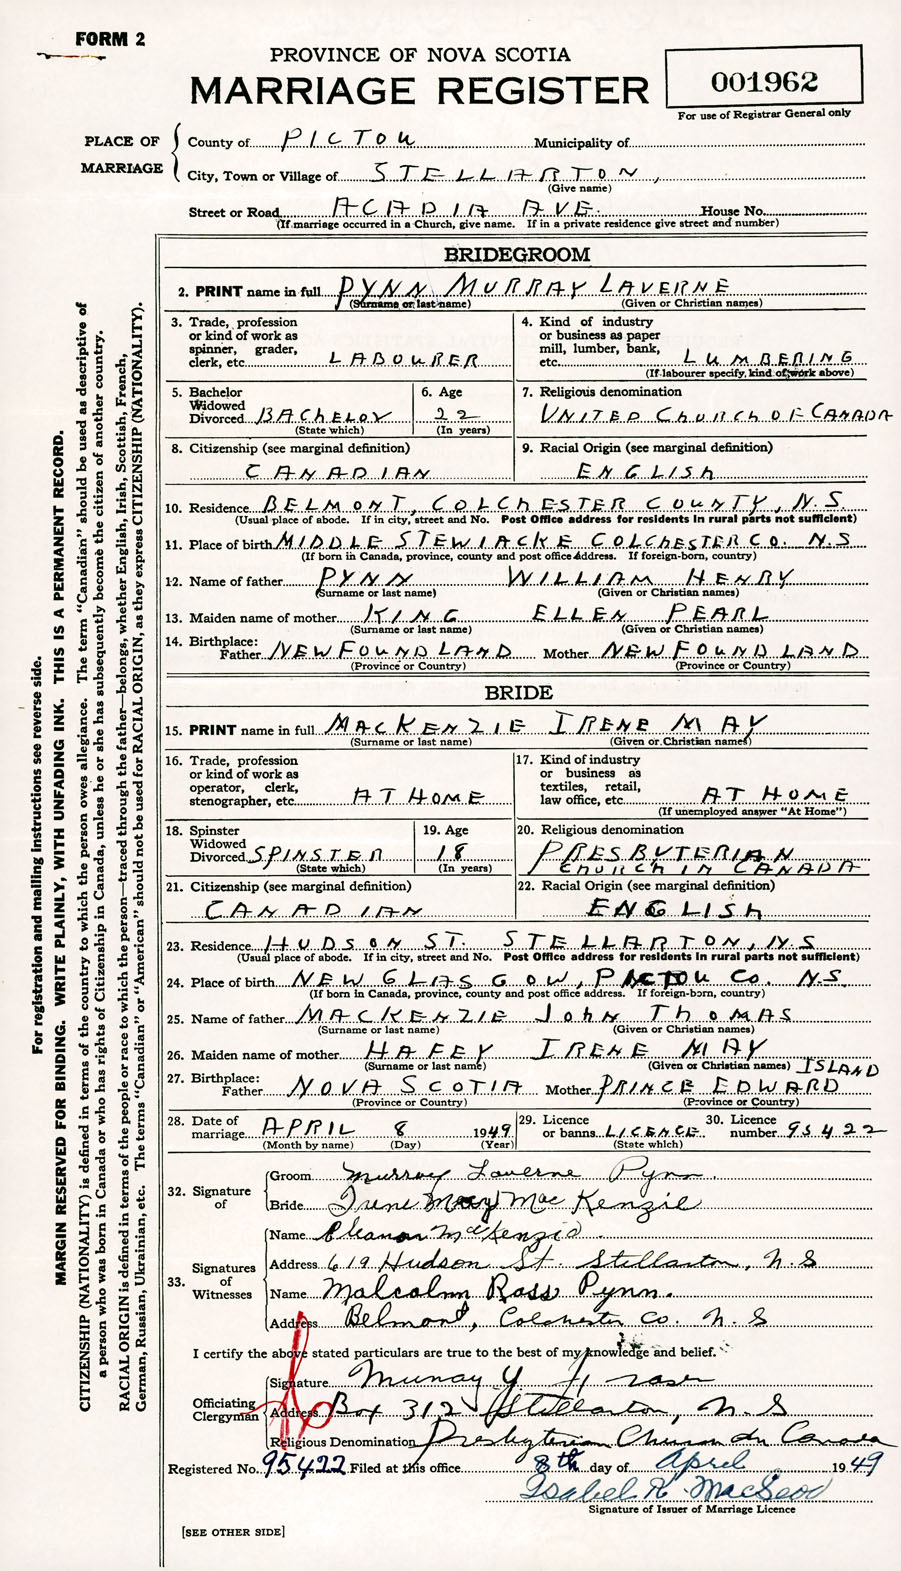 FORM 2
PROVINCE OF NOVA SCOTIA
MARRIAGE REGISTER
001962
For use of Registrar General only
PLACE OF MARRIAGE
County of PICTOU Municipality of
City, Town or Village of STELLARTON,
(Give name)
Street or Road ACADIA AVE. House No.
(If marriage occurred in a Church, give name. If in a private residence give street and number)
BRIDEGROOM
2. PRINT name in full PYNN MURRAY LAVERNE
(Surname or last name) (Given or Christian names)
3. Trade, profession or kind of work as spinner, grader, clerk, etc. LABOURER
4. Kind of industry or business as paper mill, lumber, bank, etc. LUMBERING
(If labourer specify, kind of work above)
5. Bachelor Widowed Divorced BACHELOR
(State which)
6. Age 22
(In years)
7. Religious denomination
UNITED CHURCH OF CANADA
8. Citizenship (see marginal definition)
CANADIAN
9. Racial Origin (see marginal definition)
ENGLISH
10. Residence BELMONT, COLCHESTER COUNTY, N.S.
(Usual place of abode. If in city, street and No. Post Office address for residents in rural parts not sufficient)
11. Place of birth MIDDLE STEWIACKE COLCHESTER CO. N.S
(If born in Canada, province, county and post office address. If foreign-born, country)
12. Name of father PYNN WILLIAM HENRY
(Surname or last name) (Given or Christian names)
13. Maiden name of mother KING ELLEN PEARL
(Surname or last name) (Given or Christian names)
14. Birthplace:
Father NEWFOUNDLAND Mother NEWFOUNDLAND
(Province or Country) (Province or Country)
BRIDE
15. PRINT name in full MACKENZIE IRENE MAY
(Surname or last name) (Given or Christian names)
16. Trade, profession or kind of work as operator, clerk, stenographer, etc. AT HOME
17. Kind of industry or business as textiles, retail, law office, etc. AT HOME
(If unemployed answer "At Home")
18. Spinster Widowed Divorced SPINSTER
(State which)
19. Age 18
(In years)
20. Religious denomination
PRESBYTERIAN
CHURCH IN CANADA
21. Citizenship (see marginal definition)
CANADIAN
22. Racial Origin (see marginal definition)
ENGLISH
23. Residence HUDSON ST. STELLARTON, N.S
(Usual place of abode. If in city, street and No. Post Office address for residents in rural parts not sufficient)
24. Place of birth NEW GLASGOW, PICTOU CO. N.S.
(If born in Canada, province, county and post office address. If foreign-born, country)
25. Name of father MACKENZIE JOHN THOMAS
(Surname or last name) (Given or Christian names)
26. Maiden name of mother HAFEY IRENE MAY
(Surname or last name) (Given or Christian names) ISLAND
27. Birthplace:
Father NOVA SCOTIA Mother PRINCE EDWARD
(Province or Country) (Province or Country)
28. Date of marriage APRIL 8 1949
(Month by name) (Day) (Year)
29. Licence or banns LICENCE
(State which)
30. Licence number 95422
32. Signature of
Groom Murray Laverne Pynn.
Bride Irene May Mac Kenzie
33. Signatures of Witnesses
Name Eleanor MacKenzie.
Address 619 Hudson St. Stellarton, N.S
Name Malcolm Ross Pynn.
Address Belmont, Colchester Co. N.S
I certify the above stated particulars are true to the best of my knowledge and belief.
Officiating Clergyman
Signature Murray Y Fraser
Address Box 312 Stellarton, N S
Religious Denomination Presbyterian Church in Canada
Registered No. 95422 Filed at this office 8th day of April 1949
Isabel R. MacLeod
Signature of Issuer of Marriage Licence
[SEE OTHER SIDE]
For registration and mailing instructions see reverse side.
MARGIN RESERVED FOR BINDING. WRITE PLAINLY, WITH UNFADING INK. THIS IS A PERMANENT RECORD.
CITIZENSHIP (NATIONALITY) is defined in terms of the country to which the person owes allegiance. The term "Canadian" should be used as descriptive of
a person who was born in Canada or who has rights of Citizenship in Canada, unless he or she has subsequently become the citizen of another country.
RACIAL ORIGIN is defined in terms of the people or race to which the person—traced through the father—belongs, whether English, Irish, Scottish, French,
German, Russian, Ukrainian, etc. The terms "Canadian" or "American" should not be used for RACIAL ORIGIN, as they express CITIZENSHIP (NATIONALITY).